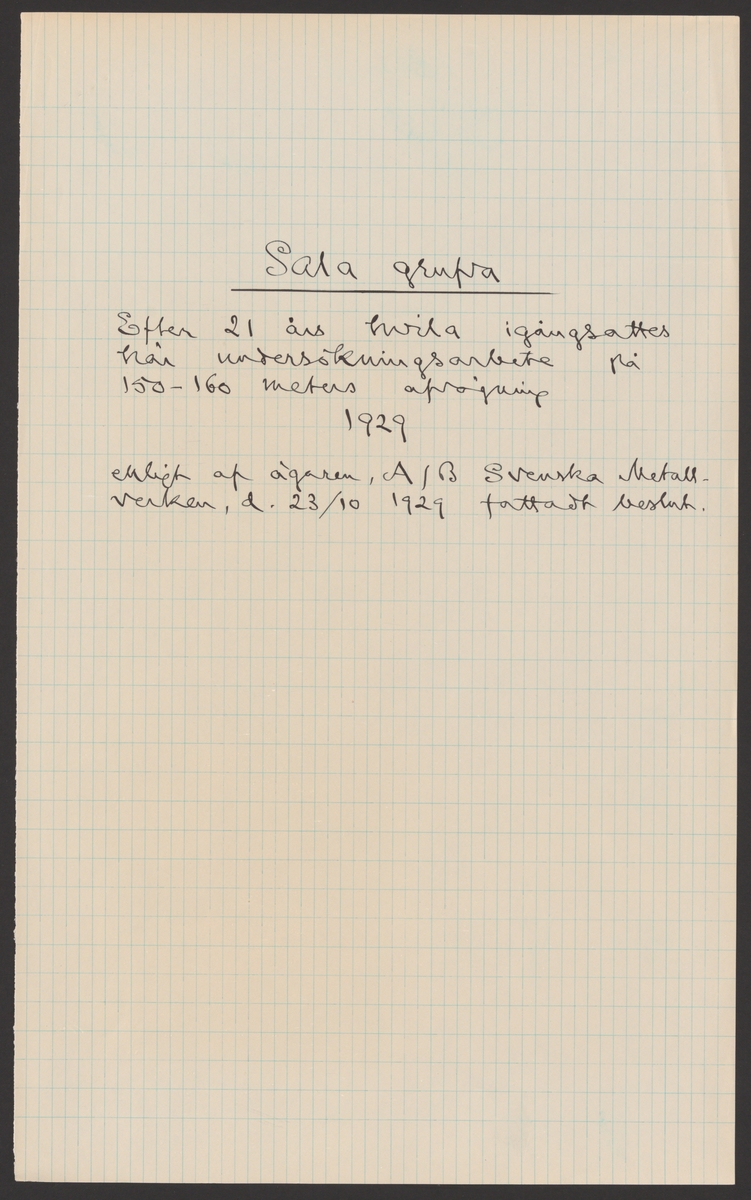 Sala grufva
Efter 21 års hvila igångsattes
här undersökningsarbete på
150-160 meters afvägning
1929
enligt af ägaren, A/B Svenska Metall-
verken, d. 23/10 1929 fattadt beslut.